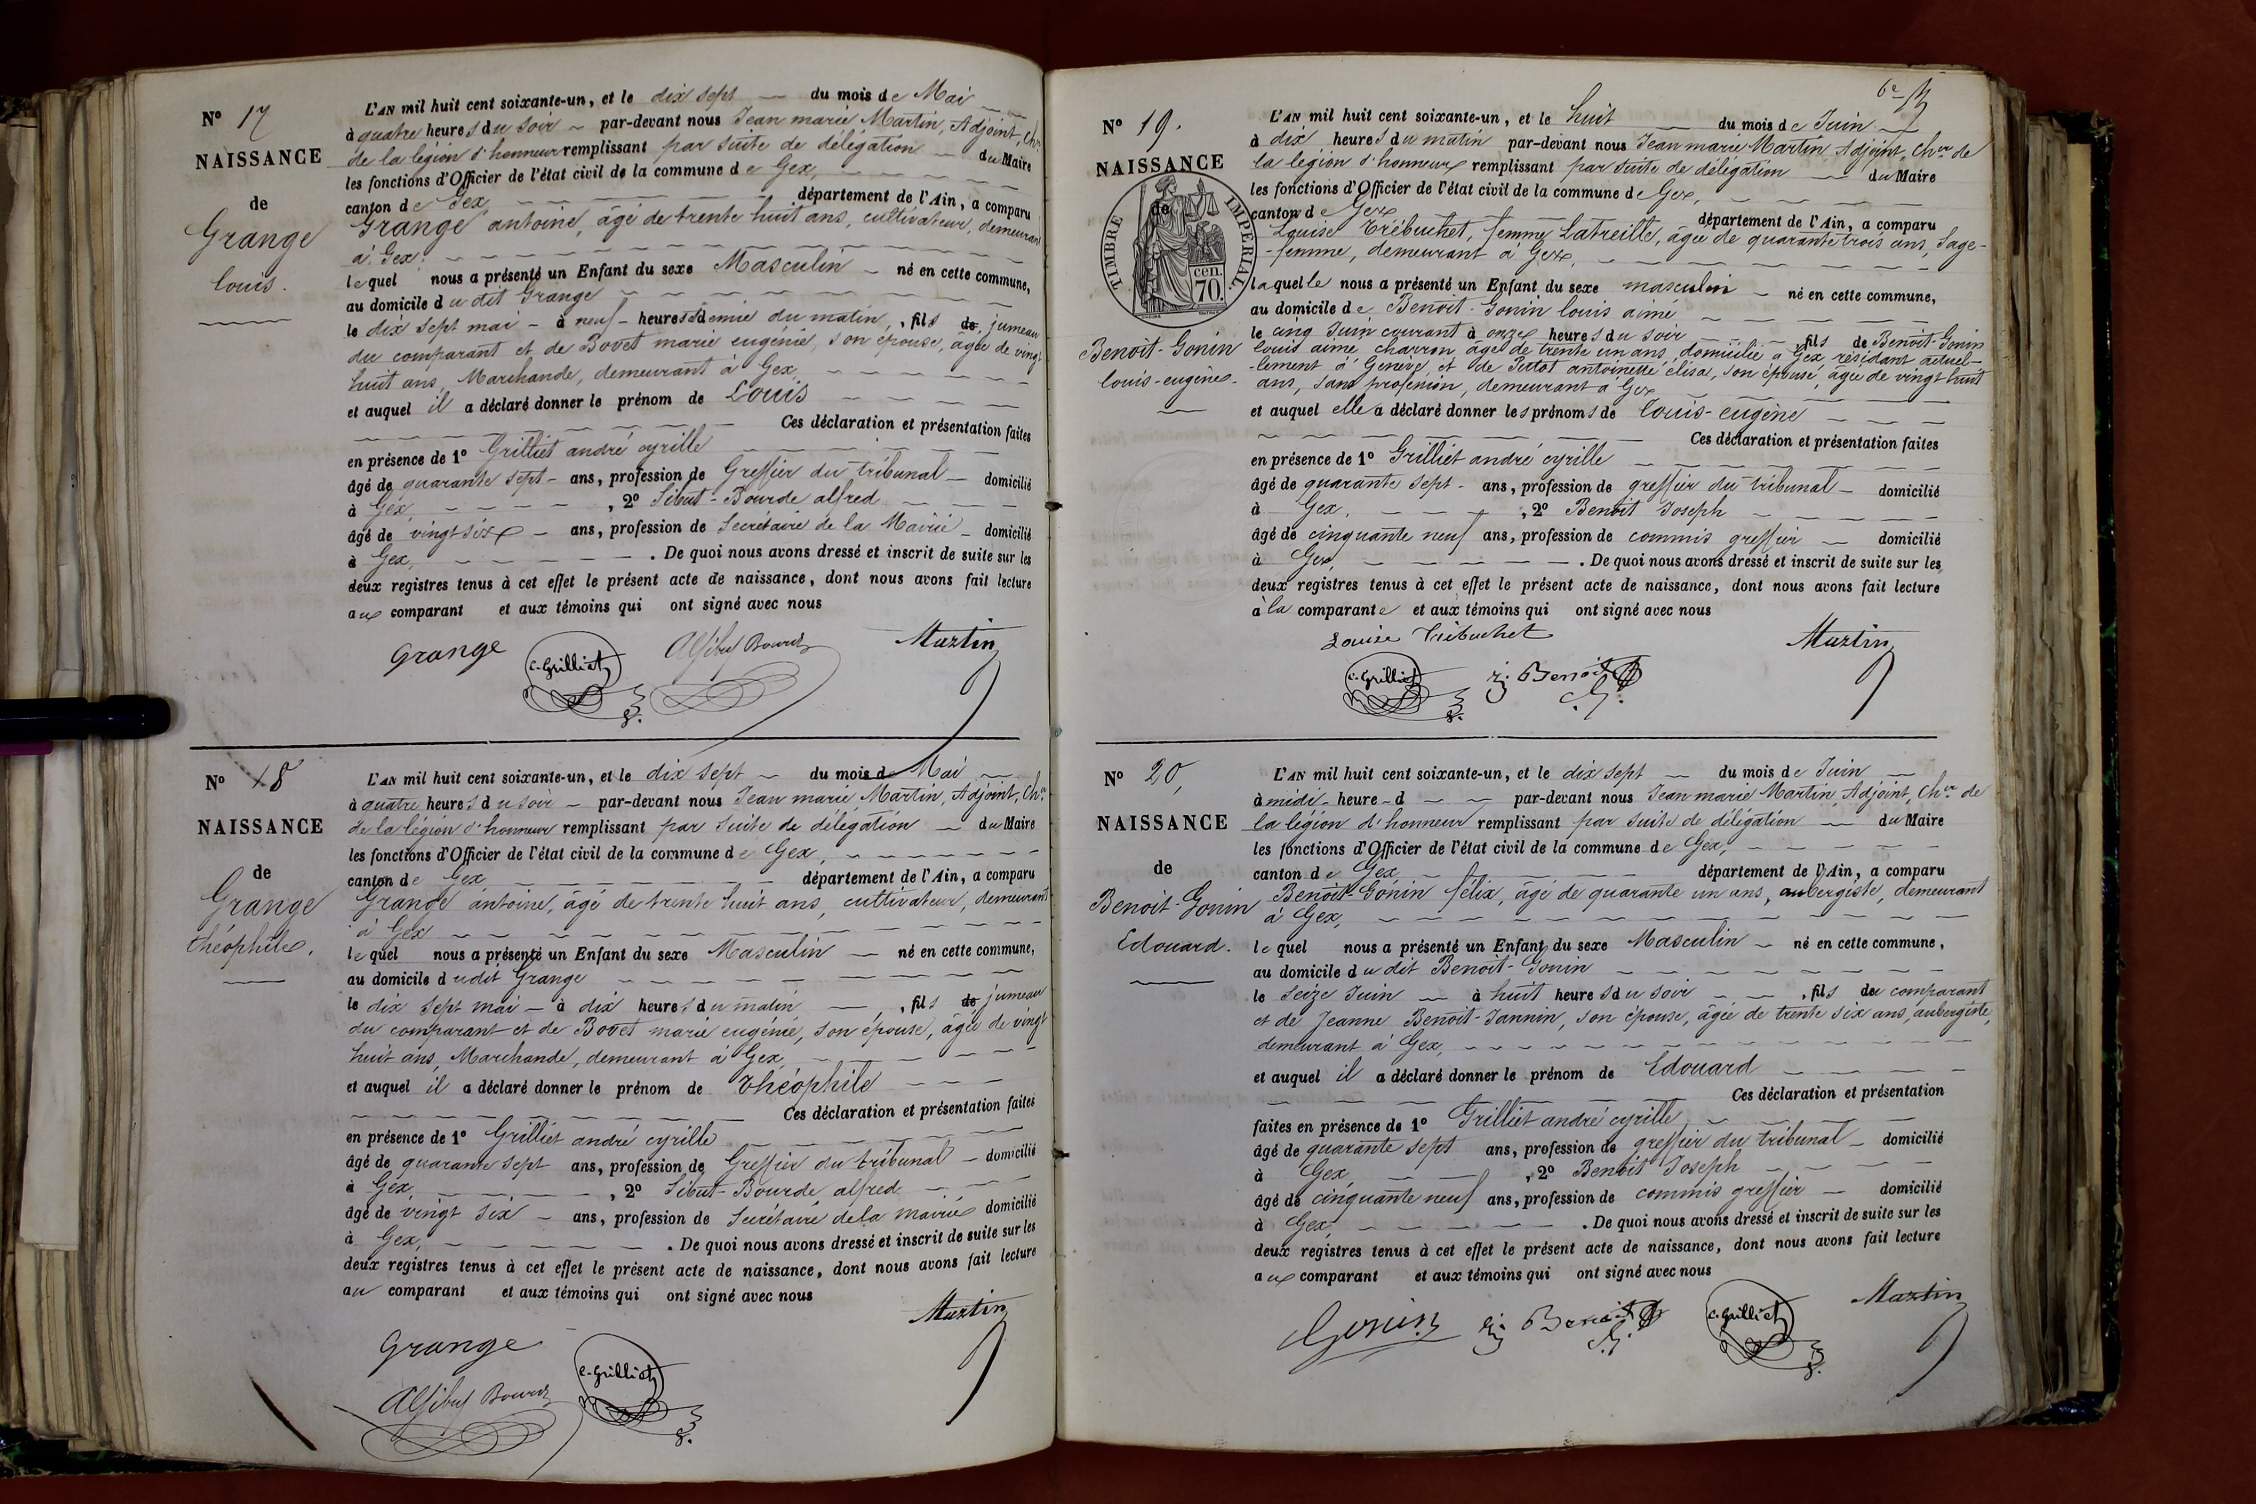 N° 17
NAISSANCE
de
Grange
Louis.
L'AN mil huit cent soixante-un, et le dix sept du mois de Mai
à quatre heures du soir par-devant nous Jean marie Martin, Adjoint, Cher
de la légion d'honneur remplissant par suite de délégation du Maire
les fonctions d'Officier de l'état civil de la commune de Gex,
canton de Gex département de l'Ain, a comparu
Grange antoine, âgé de trente huit ans, cultivateur, demeurant
à Gex,
lequel nous a présenté un Enfant du sexe Masculin né en cette commune,
au domicile du dit Grange
le dix sept mai à neuf heures & demie du matin, fils de jumeau
du comparant et de Bovet marie eugénie, son épouse, âgée de vingt
huit ans, Marchande, demeurant à Gex
et auquel il a déclaré donner le prénom de Louis
Ces déclaration et présentation faites
en présence de 1° Grilliet andré cyrille
âgé de quarante sept ans, profession de Greffier du tribunal domicilié
à Gex , 2° Sibut-Bourde alfred
âgé de vingt six ans, profession de Secrétaire de la Mairie domicilié
à Gex, . De quoi nous avons dressé et inscrit de suite sur les
deux registres tenus à cet effet le présent acte de naissance, dont nous avons fait lecture
aux comparant et aux témoins qui ont signé avec nous
Grange C. Grilliet A Sibut Bourde Martin
N° 18
NAISSANCE
de
Grange
théophile.
L'AN mil huit cent soixante-un, et le dix sept du mois de Mai
à quatre heures du soir par-devant nous Jean marie Martin, Adjoint, Cher
de la légion d'honneur remplissant par suite de délégation du Maire
les fonctions d'Officier de l'état civil de la commune de Gex,
canton de Gex département de l'Ain, a comparu
Grange antoine, âgé de trente huit ans, cultivateur, demeurant
à Gex
lequel nous a présenté un Enfant du sexe Masculin né en cette commune,
au domicile dudit Grange
le dix sept mai à dix heures du matin , fils de jumeau
du comparant et de Bovet marie eugénie, son épouse, âgée de vingt
huit ans, Marchande, demeurant à Gex
et auquel il a déclaré donner le prénom de Théophile
Ces déclaration et présentation faites
en présence de 1° Grilliet andré cyrille
âgé de quarante sept ans, profession de Greffier du tribunal domicilié
à Gex , 2° Sibut-Bourde alfred
âgé de vingt six ans, profession de Secrétaire de la mairie domicilié
à Gex, . De quoi nous avons dressé et inscrit de suite sur les
deux registres tenus à cet effet le présent acte de naissance, dont nous avons fait lecture
au comparant et aux témoins qui ont signé avec nous
Martin
Grange C. Grilliet
A Sibut Bourde
6e
N° 19.
NAISSANCE
de
TIMBRE IMPERIAL
70 cen.
Benoit-Gonin
louis-eugène.
L'AN mil huit cent soixante-un, et le huit du mois de Juin
à dix heures du matin par-devant nous Jean marie Martin Adjoint, Cher de
la légion d'honneur remplissant par suite de délégation du Maire
les fonctions d'Officier de l'état civil de la commune de Gex,
canton de Gex, département de l'Ain, a comparu
Louise Trébuchet, femme Latreille, âgée de quarante trois ans, Sage-
-femme, demeurant à Gex,
laquelle nous a présenté un Enfant du sexe masculin né en cette commune,
au domicile de Benoit-Gonin louis aimé
le cinq Juin courant à onze heures du soir , fils de Benoit-Gonin
louis aimé, charron âgé de trente un ans, domicilié à Gex résidant actuel-
-lement à Genève, et de antoinette élisa, son épouse, âgée de vingt huit
ans, sans profession, demeurant à Gex
et auquel elle a déclaré donner les prénoms de Louis-eugène
Ces déclaration et présentation faites
en présence de 1° Grilliet andré cyrille
âgé de quarante sept ans, profession de greffier du tribunal domicilié
à Gex. , 2° Benoit Joseph
âgé de cinquante neuf ans, profession de commis greffier domicilié
à Gex, . De quoi nous avons dressé et inscrit de suite sur les
deux registres tenus à cet effet le présent acte de naissance, dont nous avons fait lecture
à la comparante et aux témoins qui ont signé avec nous
Louise Trébuchet Martin
C. Grilliet Benoit
N° 20,
NAISSANCE
de
Benoit-Gonin
Edouard.
L'AN mil huit cent soixante-un, et le dix sept du mois de Juin
à midi heure d par-devant nous Jean marie Martin, Adjoint, Cher de
la légion d'honneur remplissant par suite de délégation du Maire
les fonctions d'Officier de l'état civil de la commune de Gex,
canton de Gex département de l'Ain, a comparu
Benoit-Gonin félix, âgé de quarante un ans, aubergiste, demeurant
à Gex,
lequel nous a présenté un Enfant du sexe Masculin né en cette commune,
au domicile du dit Benoit-Gonin
le seize Juin à huit heures du soir , fils du comparant
et de Jeanne Benoit-Jannin, son épouse, âgée de trente six ans, aubergiste,
demeurant à Gex,
et auquel il a déclaré donner le prénom de Edouard
Ces déclaration et présentation
faites en présence de 1° Grilliet andré cyrille
âgé de quarante sept ans, profession de greffier du tribunal domicilié
à Gex , 2° Benoit Joseph
âgé de cinquante neuf ans, profession de commis greffier domicilié
à Gex, . De quoi nous avons dressé et inscrit de suite sur les
deux registres tenus à cet effet le présent acte de naissance, dont nous avons fait lecture
aux comparant et aux témoins qui ont signé avec nous
Gonin Benoit C. Grilliet Martin